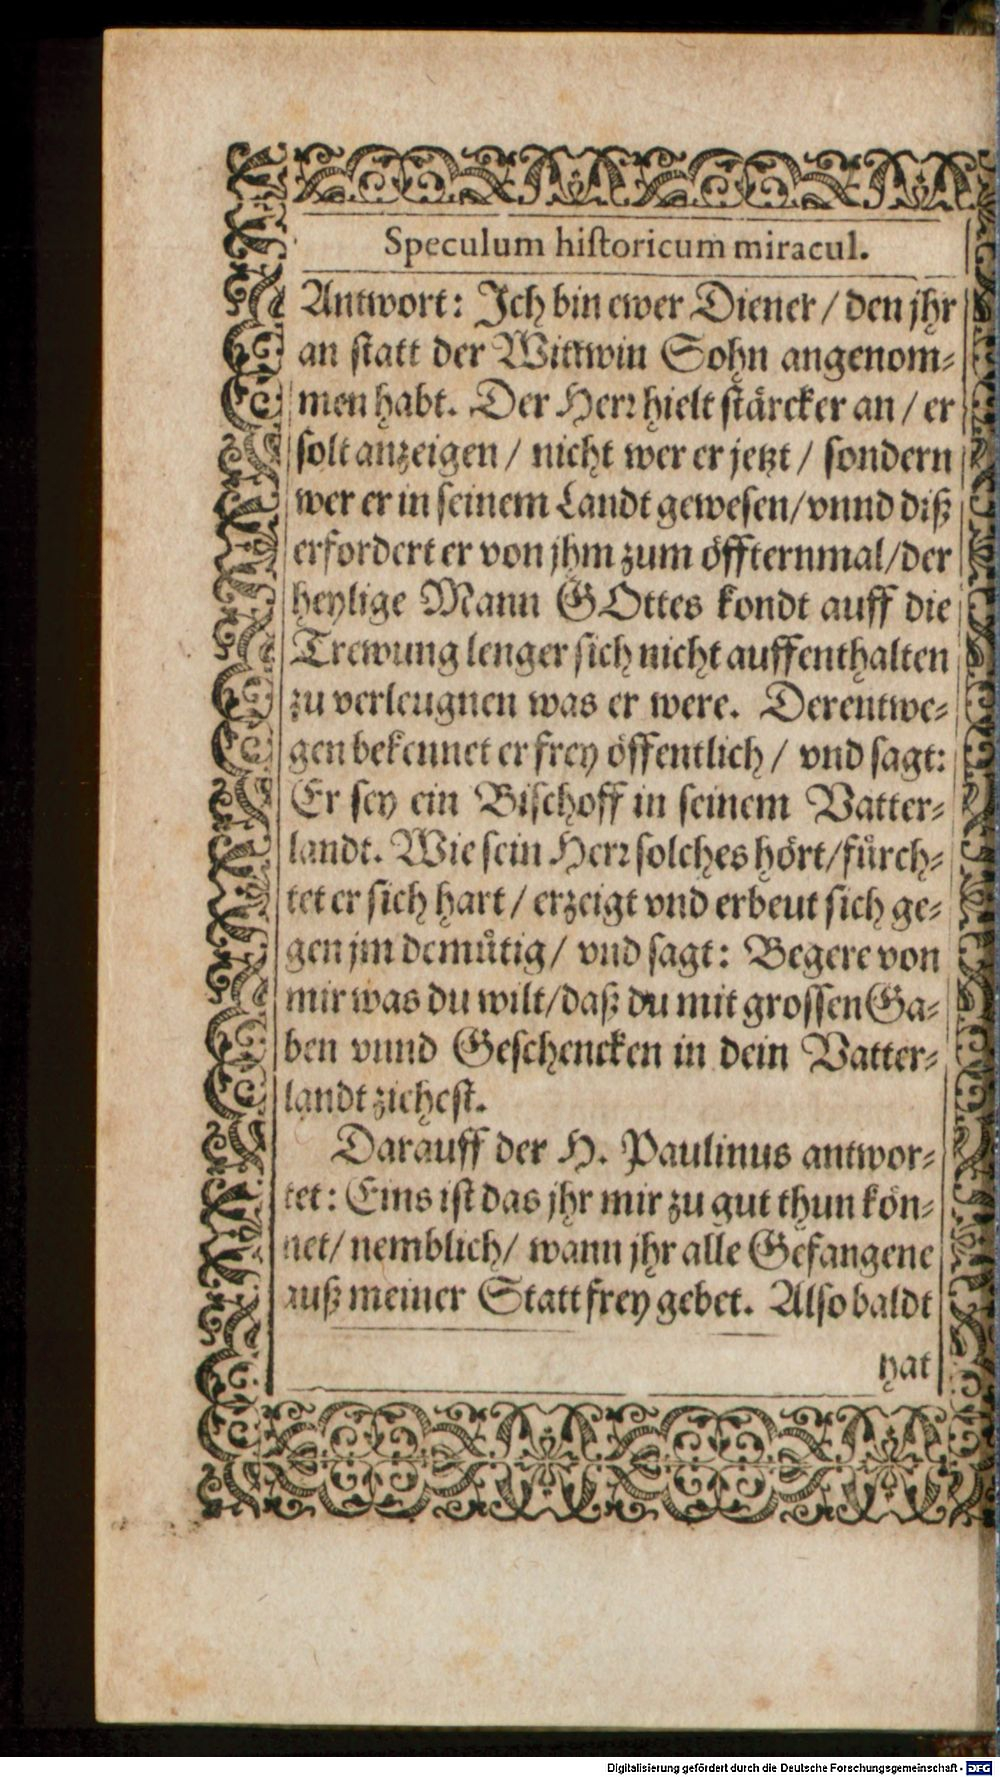 Speculum historicum miracul.
Antwort: Jch bin ewer Diener / den jhr
an statt der Wittwin Sohn angenom⸗
men habt. Der Herr hielt stärcker an / er
solt anzeigen / nicht wer er jetzt / sondern
wer er in seinem Landt gewesen/ vnnd diß
erfordert er von jhm zum öffternmal/ der
heylige Mann GOttes kondt auff die
Trewung lenger sich nicht auffenthalten
zu verleugnen was er were. Derentwe⸗
gen bekennet er frey öffentlich / vnd sagt:
Er sey ein Bischoff in seinem Vatter⸗
landt. Wie sein Herr solches hört/ fürch⸗
tet er sich hart / erzeigt vnd erbeut sich ge⸗
gen jm demütig/ vnd sagt: Begere von
mir was du wilt/ daß du mit grossen Ga⸗
ben vnnd Geschencken in dein Vatter⸗
landt ziehest.
Darauff der H. Paulinus antwor⸗
tet: Eins ist das jhr mir zu gut thun kön⸗
net/ nemblich/ wann jhr alle Gefangene
auß meiner Statt frey gebet. Also baldt
hat
Digitalisierung gefördert durch die Deutsche Forschungsgemeinschaft - DFG